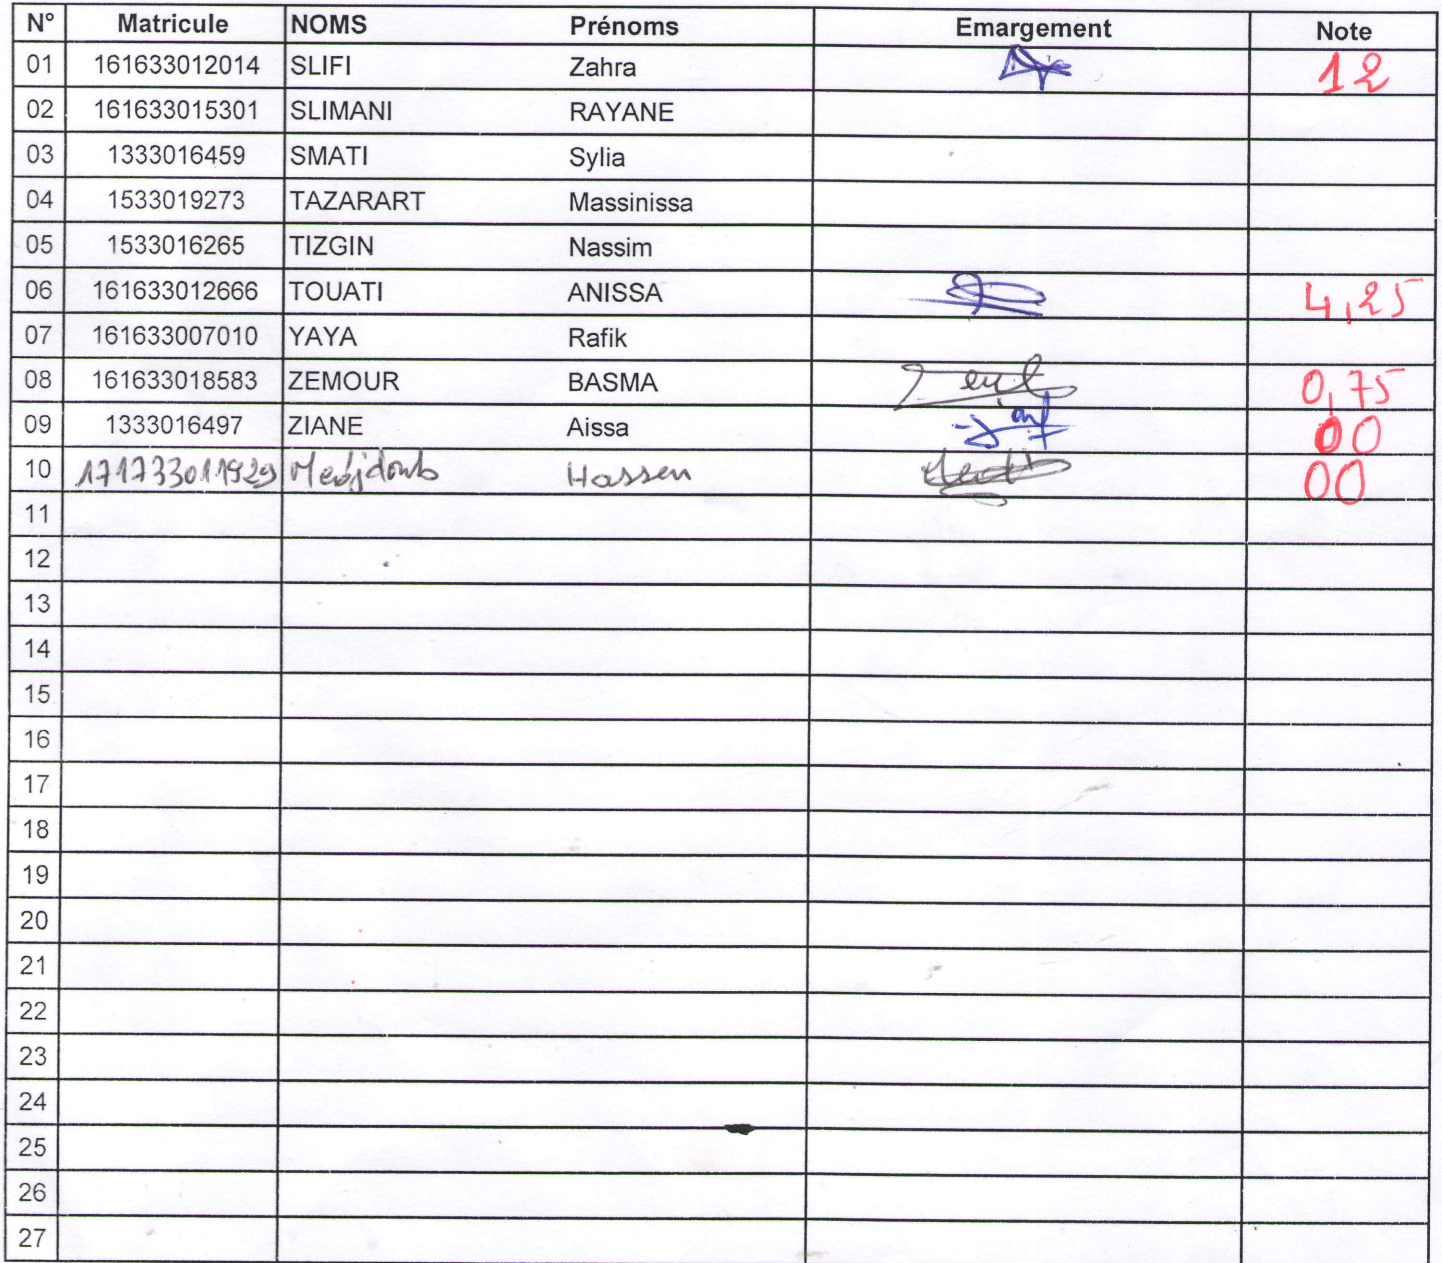 N° Matricule NOMS Prénoms Emargement Note
01 161633012014 SLIFI Zahra 12
02 161633015301 SLIMANI RAYANE
03 1333016459 SMATI Sylia
04 1533019273 TAZARART Massinissa
05 1533016265 TIZGIN Nassim
06 161633012666 TOUATI ANISSA 4,25
07 161633007010 YAYA Rafik
08 161633018583 ZEMOUR BASMA 0,75
09 1333016497 ZIANE Aissa 00
10 171733011929 Medjdoub Hassen 00
11
12
13
14
15
16
17
18
19
20
21
22
23
24
25
26
27